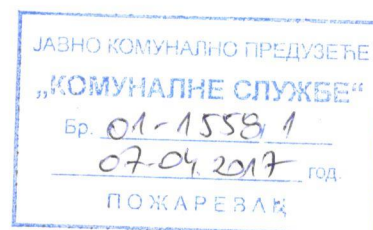 ЈАВНО КОМУНАЛНО ПРЕДУЗЕЋЕ
„КОМУНАЛНЕ СЛУЖБЕ“
Бр. 01-1559/1
07-04. 2017 год.
ПОЖАРЕВАЦ